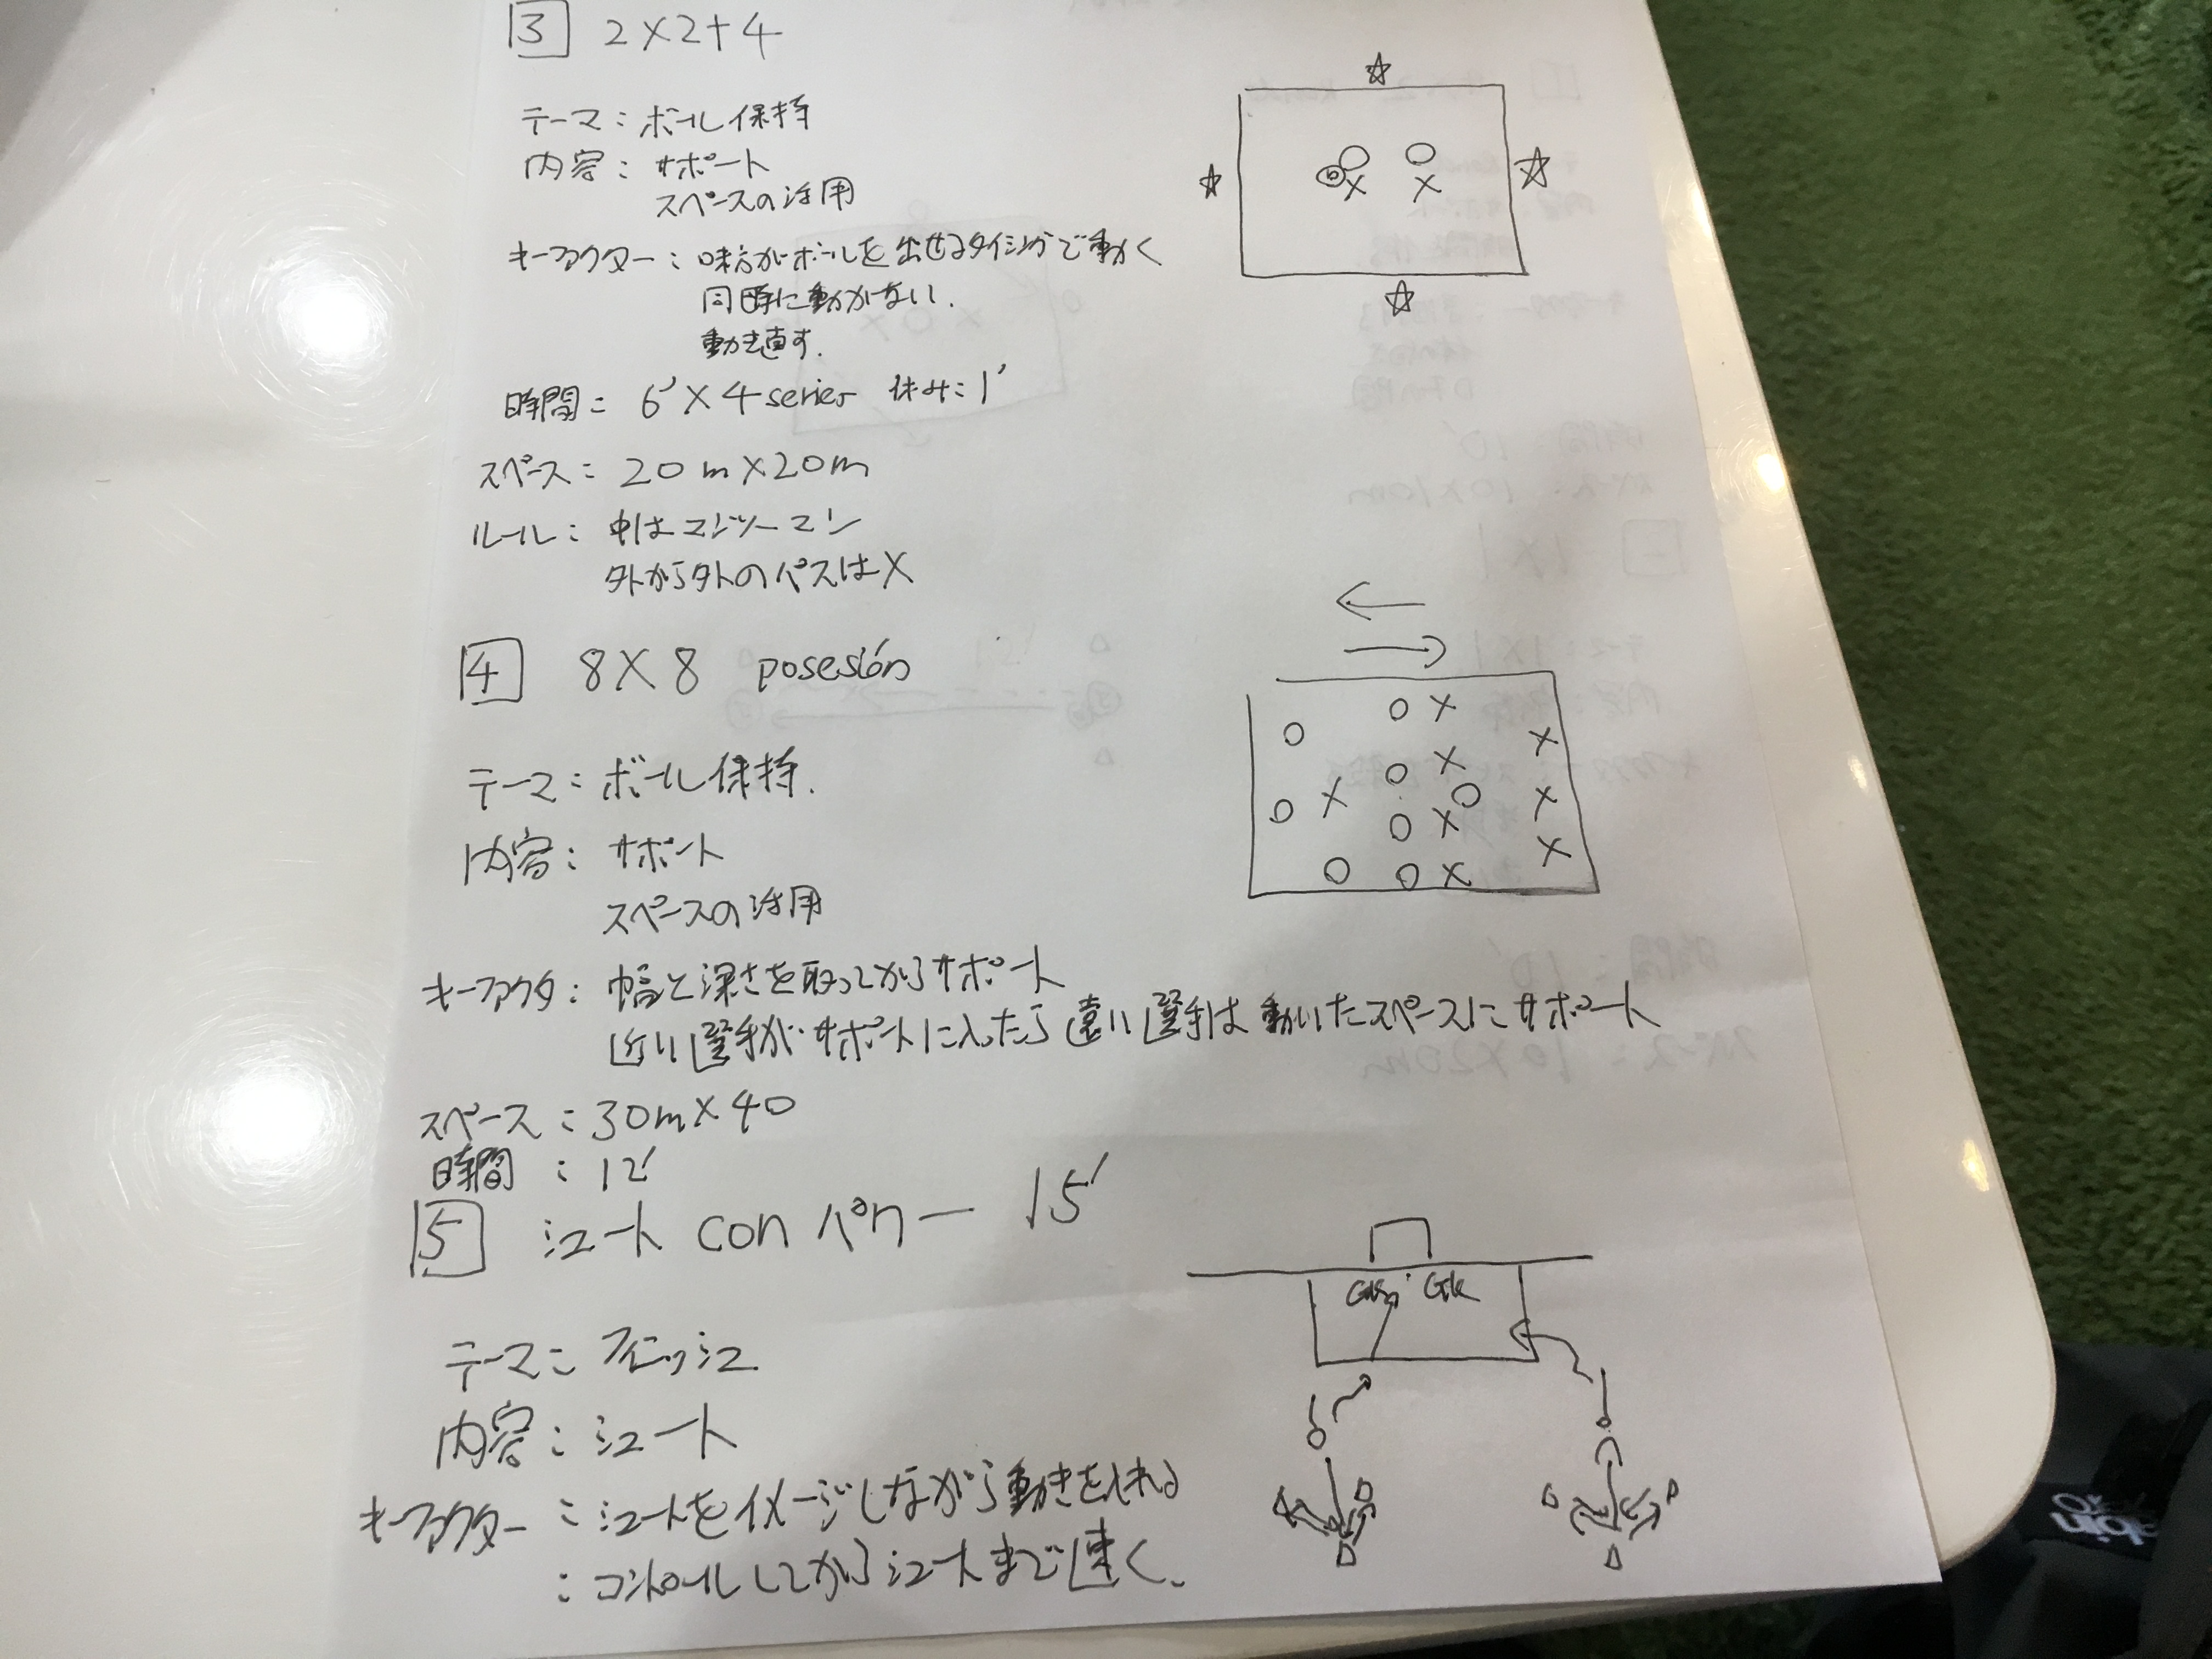 3 2×2+4
テーマ：ボール保持
内容：サポート
スペースの活用
キーファクター：味方がボールを出せるタイミングで動く
同時に動かない.
動き直す.
時間：6'×4 series 休み：1'
スペース：20m×20m
ルール：中はマンツーマン
外から外のパスは×
4 8×8 posesión
テーマ：ボール保持.
内容：サポート
スペースの活用
キーファクタ：幅と深さを取ってからサポート
近い選手がサポートに入ったら遠い選手は動いたスペースにサポート
スペース：30m×40
時間：12'
5 シュート con パワー 15'
GK GK
テーマ：フィニッシュ
内容：シュート
キーファクター：シュートをイメージしながら動きを入れる
：コントロールしてからシュートまで速く.